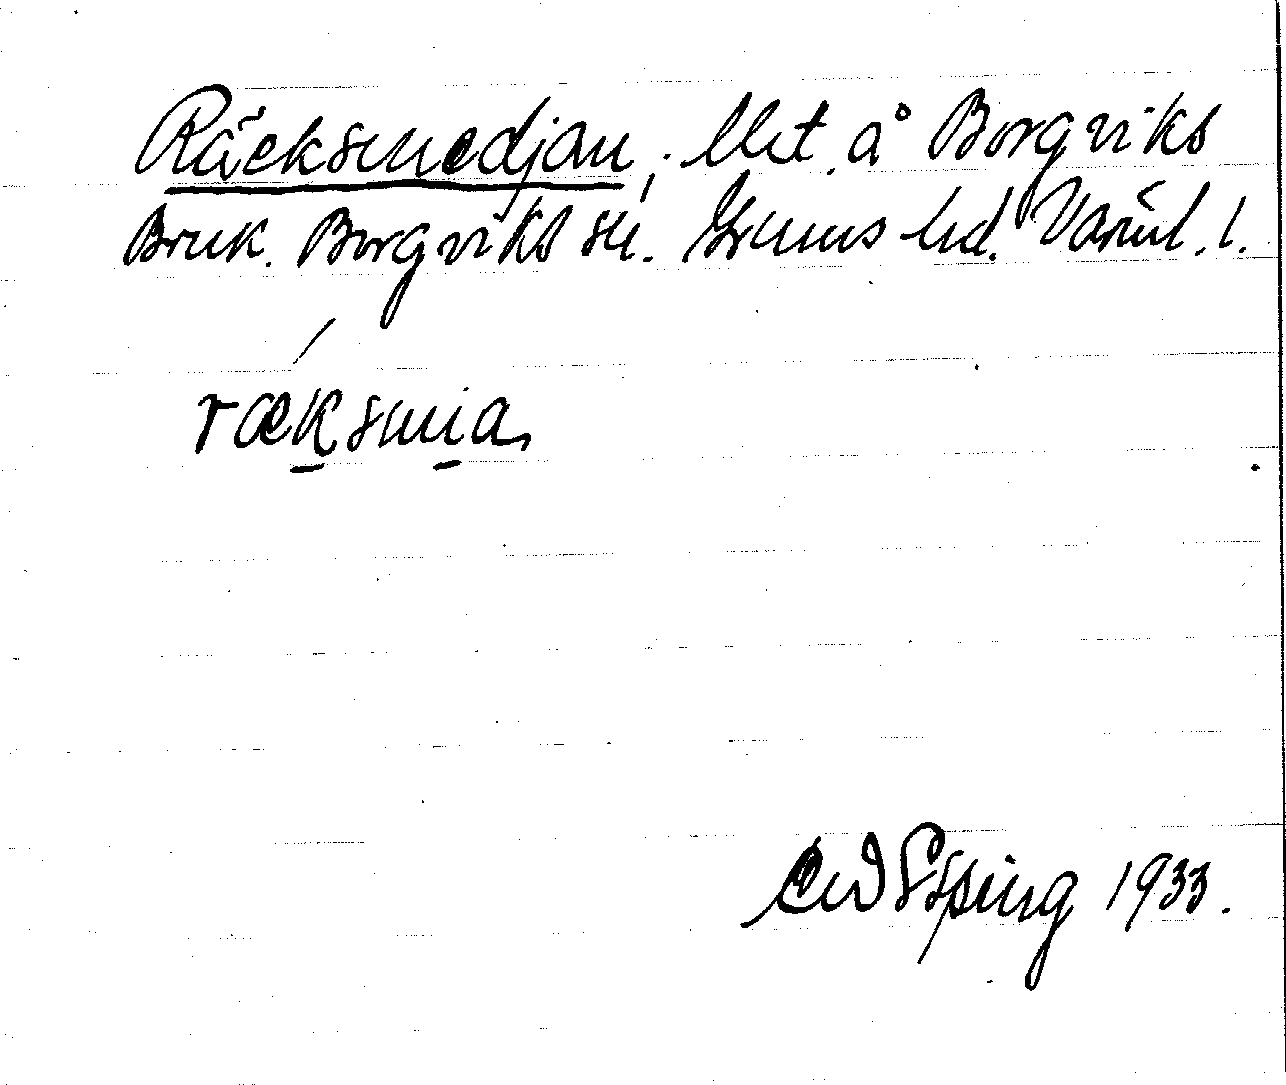 Räcksmedjan, Utt. å Borgviks
Bruk. Borgviks sn. Grums hd. Värml. l.
ræksmia,
Espling 1933.